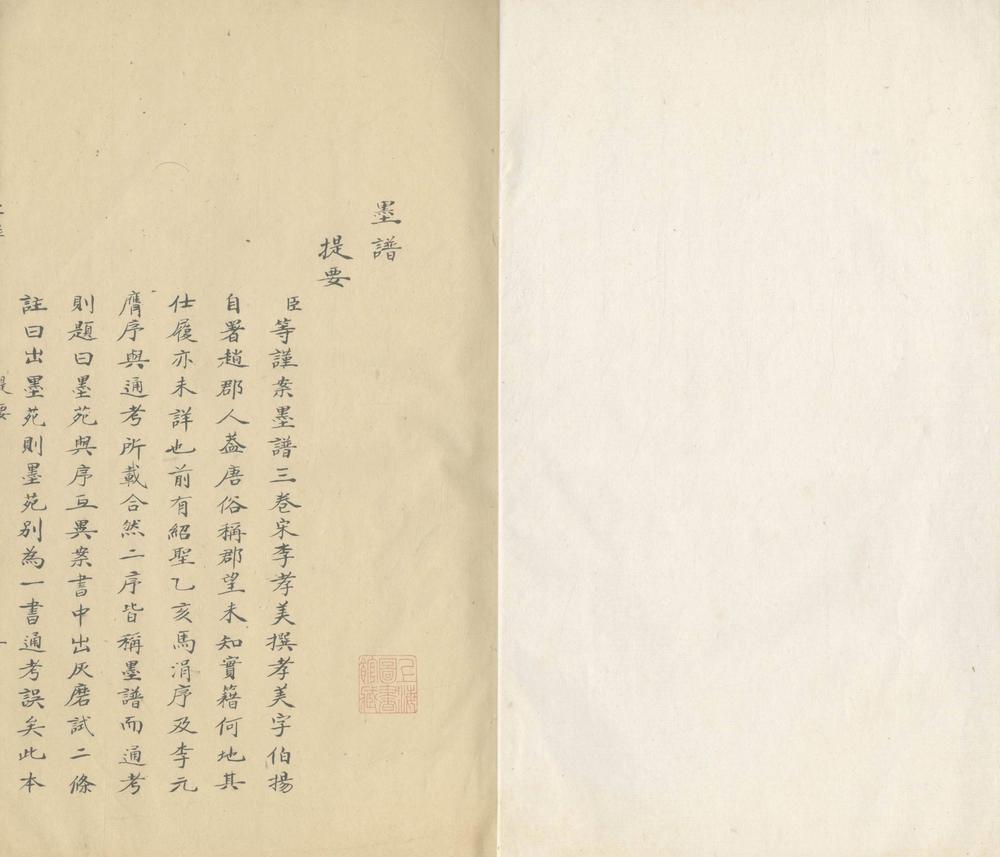 墨譜
提要
臣等謹案墨譜三卷宋李孝美撰孝美字伯揚
自署趙郡人葢唐俗稱郡望未知實籍何地其
仕履亦未詳也前有紹聖乙亥馬涓序及李元
膺序與通考所載合然二序皆稱墨譜而通考
則題曰墨苑與序互異案書中出灰磨試二條
註曰出墨苑則墨苑别為一書通考誤矣此本
上海
圖書
館藏
提要
一